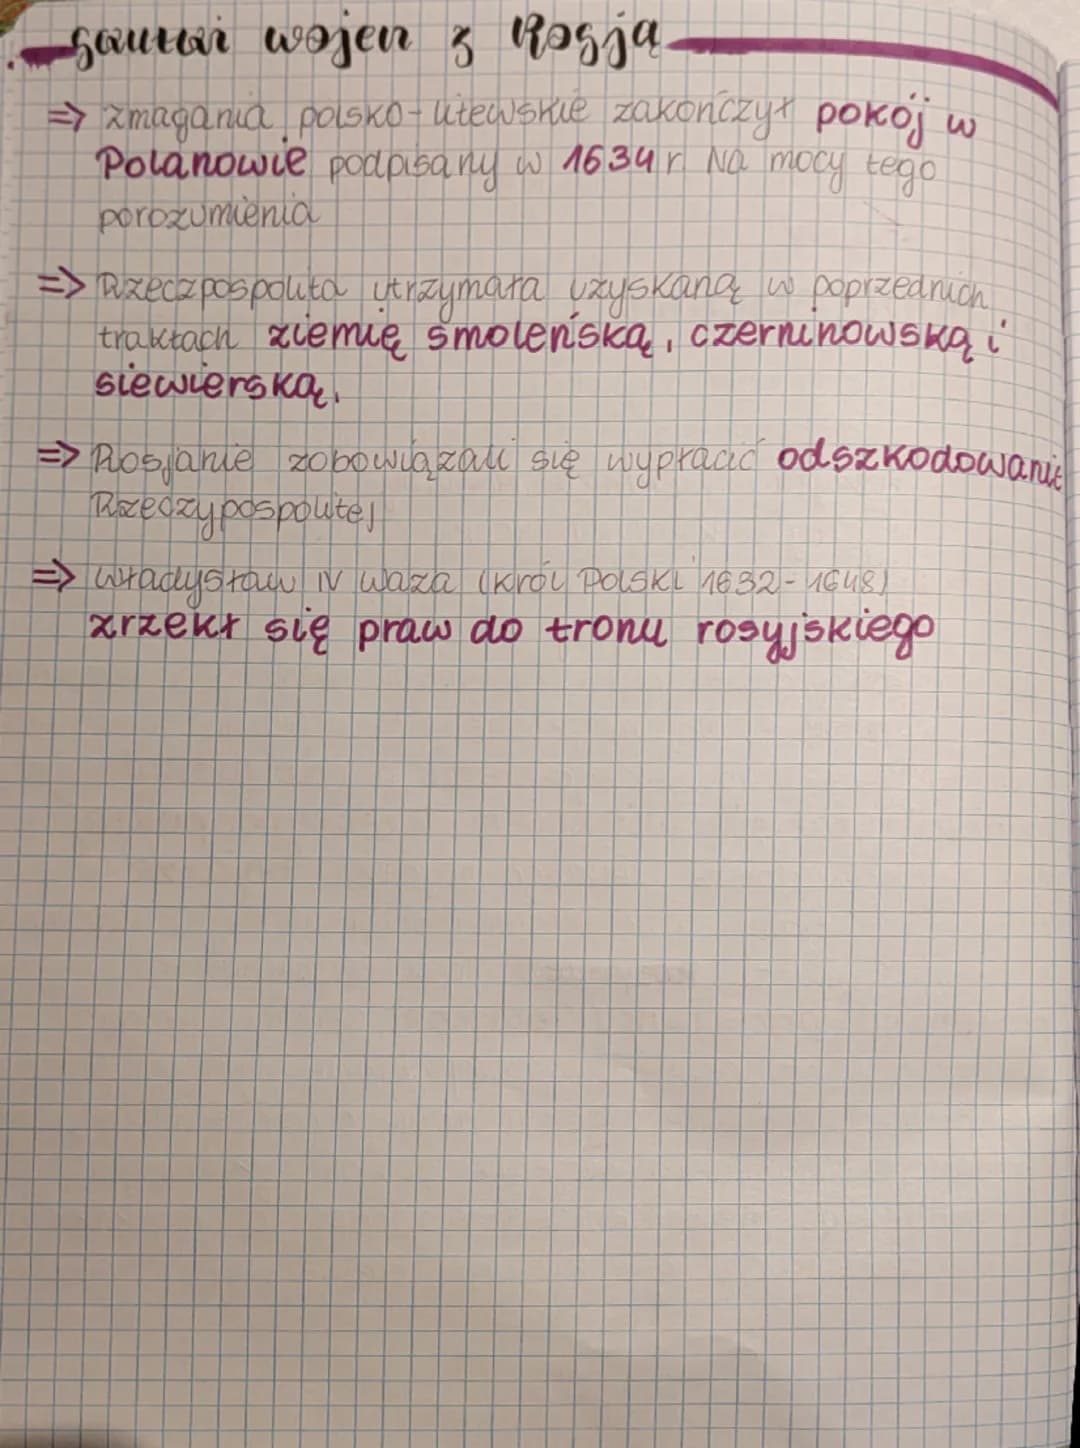 wojen z Rosją
=> zmagania polsko-litewskie zakończył pokój w
Polanowie podpisany w 1634 r. Na mocy tego
porozumienia
=> Rzeczpospolita utrzymała uzyskaną w poprzednich
traktach ziemię smoleńską, czerninowską i
siewierską.
=> Rosjanie zobowiązali się wypłacić odszkodowanie
Rzeczypospolitej
=> Władysław IV Waza (król Polski 1632-1648)
zrzekł się praw do tronu rosyjskiego